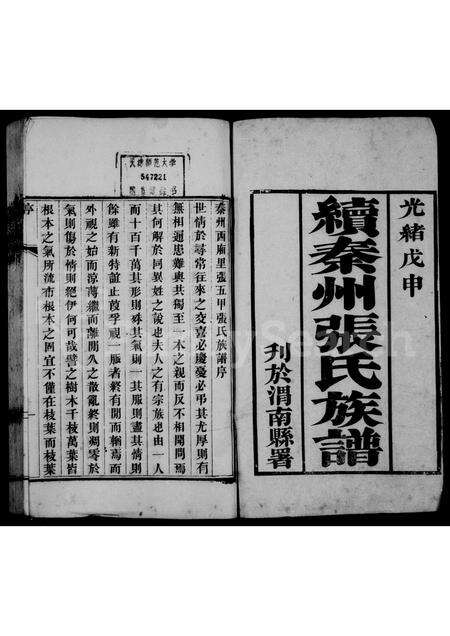 光緒戊申
續秦州張氏族譜
刊於渭南縣署
547221
秦州西廂里張五甲張氏族譜序
世情於尋常往來之交喜必慶憂必弔其尤厚則有
無相通患難與共獨至一本之親而反不相聞問焉
其何解於同異姓之說也夫人之有宗族也由一人
而十百千萬其形則殊其氣則一其服則盡其情則
餘雖有新特誼止葭莩視一脈者終有間而輒焉而
外視之始而涼薄繼而離間久之散亂終則凋零於
氣則傷於情則絕伊何可哉譬之樹木千枝萬葉皆
根本之氣所流布根本之固宜不僅在枝葉而枝葉
序